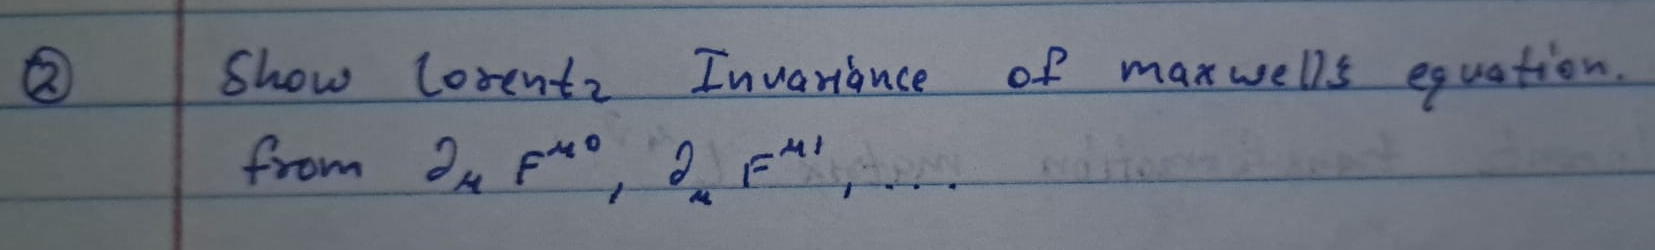 ② Show Lorentz Invariance of maxwell's equation.
from ∂_μ F^{μ0}, ∂_μ F^{μ1}, ....